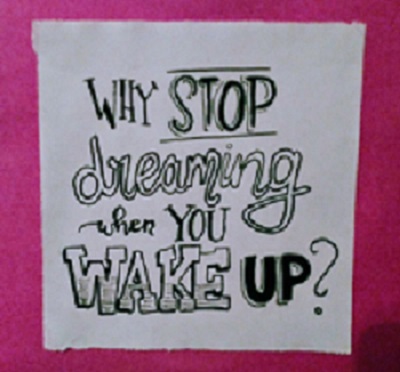 WHY STOP
dreaming
when YOU
WAKE UP?